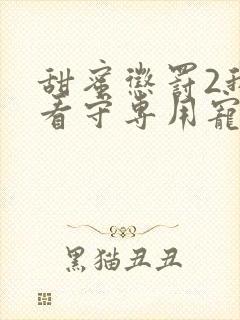 甜蜜惩罚2我
看守专用宠
黑猫丑丑